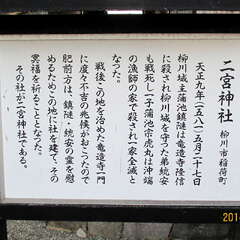 二宮神社 柳川市稲荷町
天正九年(一五八一)五月二十七日
柳川城主蒲池鎮漣は竜造寺隆信
に殺され柳川城を守った弟統安
も戦死し一子蒲池宗虎丸は沖端
の漁師の家で殺され一家全滅と
なった。
戦後この地を治めた竜造寺一門
に度々不吉の兆候がおこったので
肥前方は、鎮漣・統安の霊を慰
めるためこの地に社を建て、その
冥福を祈ることとなった。
その社が二宮神社である。
201